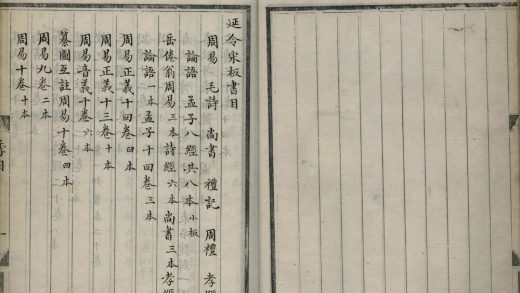 延令宋板書目
周易 毛詩 尚書 禮記 周禮 孝經
論語 孟子八經共八本 小板
岳倦翁周易三本 詩經六本 尚書三本 孝經
論語一本 孟子十四卷三本
周易正義十四卷四本
周易正義十三卷十本
周易音義十卷六本
纂圖互註周易十卷四本
周易九卷二本
周易十卷十本